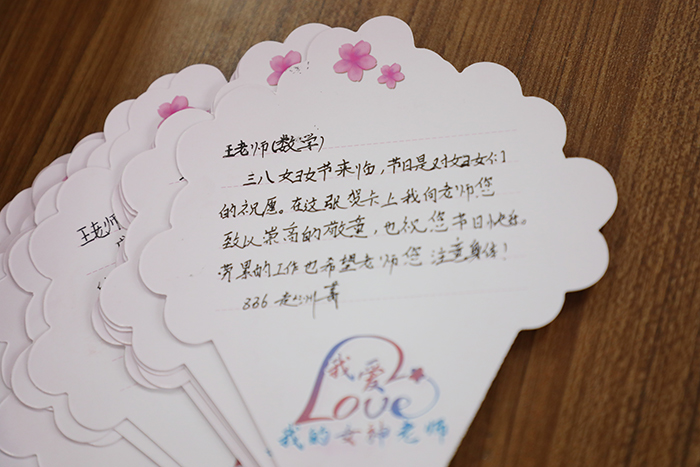 王老师(数学)
三八妇女节来临,节日是对妇女们
的祝愿。在这张贺卡上我向老师您
致以崇高的敬意,也祝您节日快乐。
劳累的工作也希望老师您注意身体!
336
我爱
Love
我的女神老师
王老师